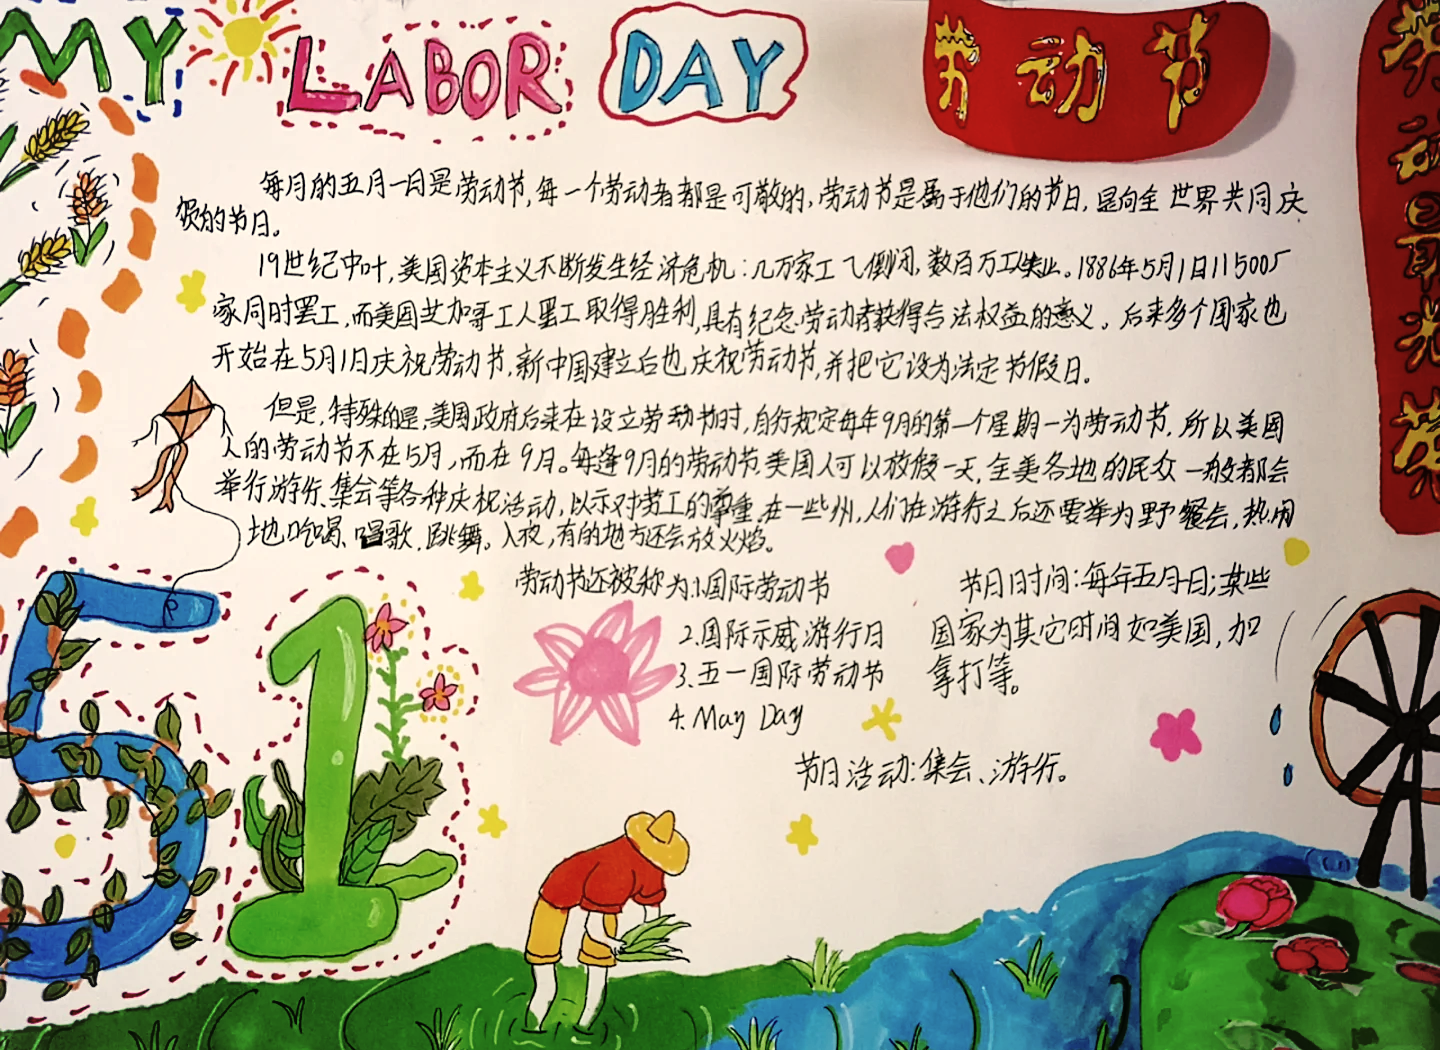 MY LABOR DAY
劳动节
劳动最光荣
每月的五月一日是劳动节,每一个劳动者都是可敬的,劳动节是属于他们的节日,是向全世界共同庆
贺的节日。
19世纪中叶,美国资本主义不断发生经济危机:几万家工厂倒闭,数百万工人失业。1886年5月1日11500厂
家同时罢工,而美国芝加哥工人罢工取得胜利,具有纪念劳动者获得合法权益的意义。后来多个国家也
开始在5月1日庆祝劳动节,新中国建立后也庆祝劳动节,并把它设为法定节假日。
但是,特殊的是,美国政府后来在设立劳动节时,自行规定每年9月的第一个星期一为劳动节,所以美国
人的劳动节不在5月,而在9月。每逢9月的劳动节美国人可以放假一天,全美各地的民众一般都会
举行游行、集会等各种庆祝活动,以示对劳工的尊重。在一些州,人们在游行之后还要举为野餐会,热闹
地吃喝、唱歌、跳舞。入夜,有的地方还会放火焰。
劳动节还被称为:1.国际劳动节
2.国际示威游行日
3.五一国际劳动节
4.May Day
节日时间:每年五月一日;某些
国家为其它时间如美国,加
拿打等。
节日活动:集会、游行。
51